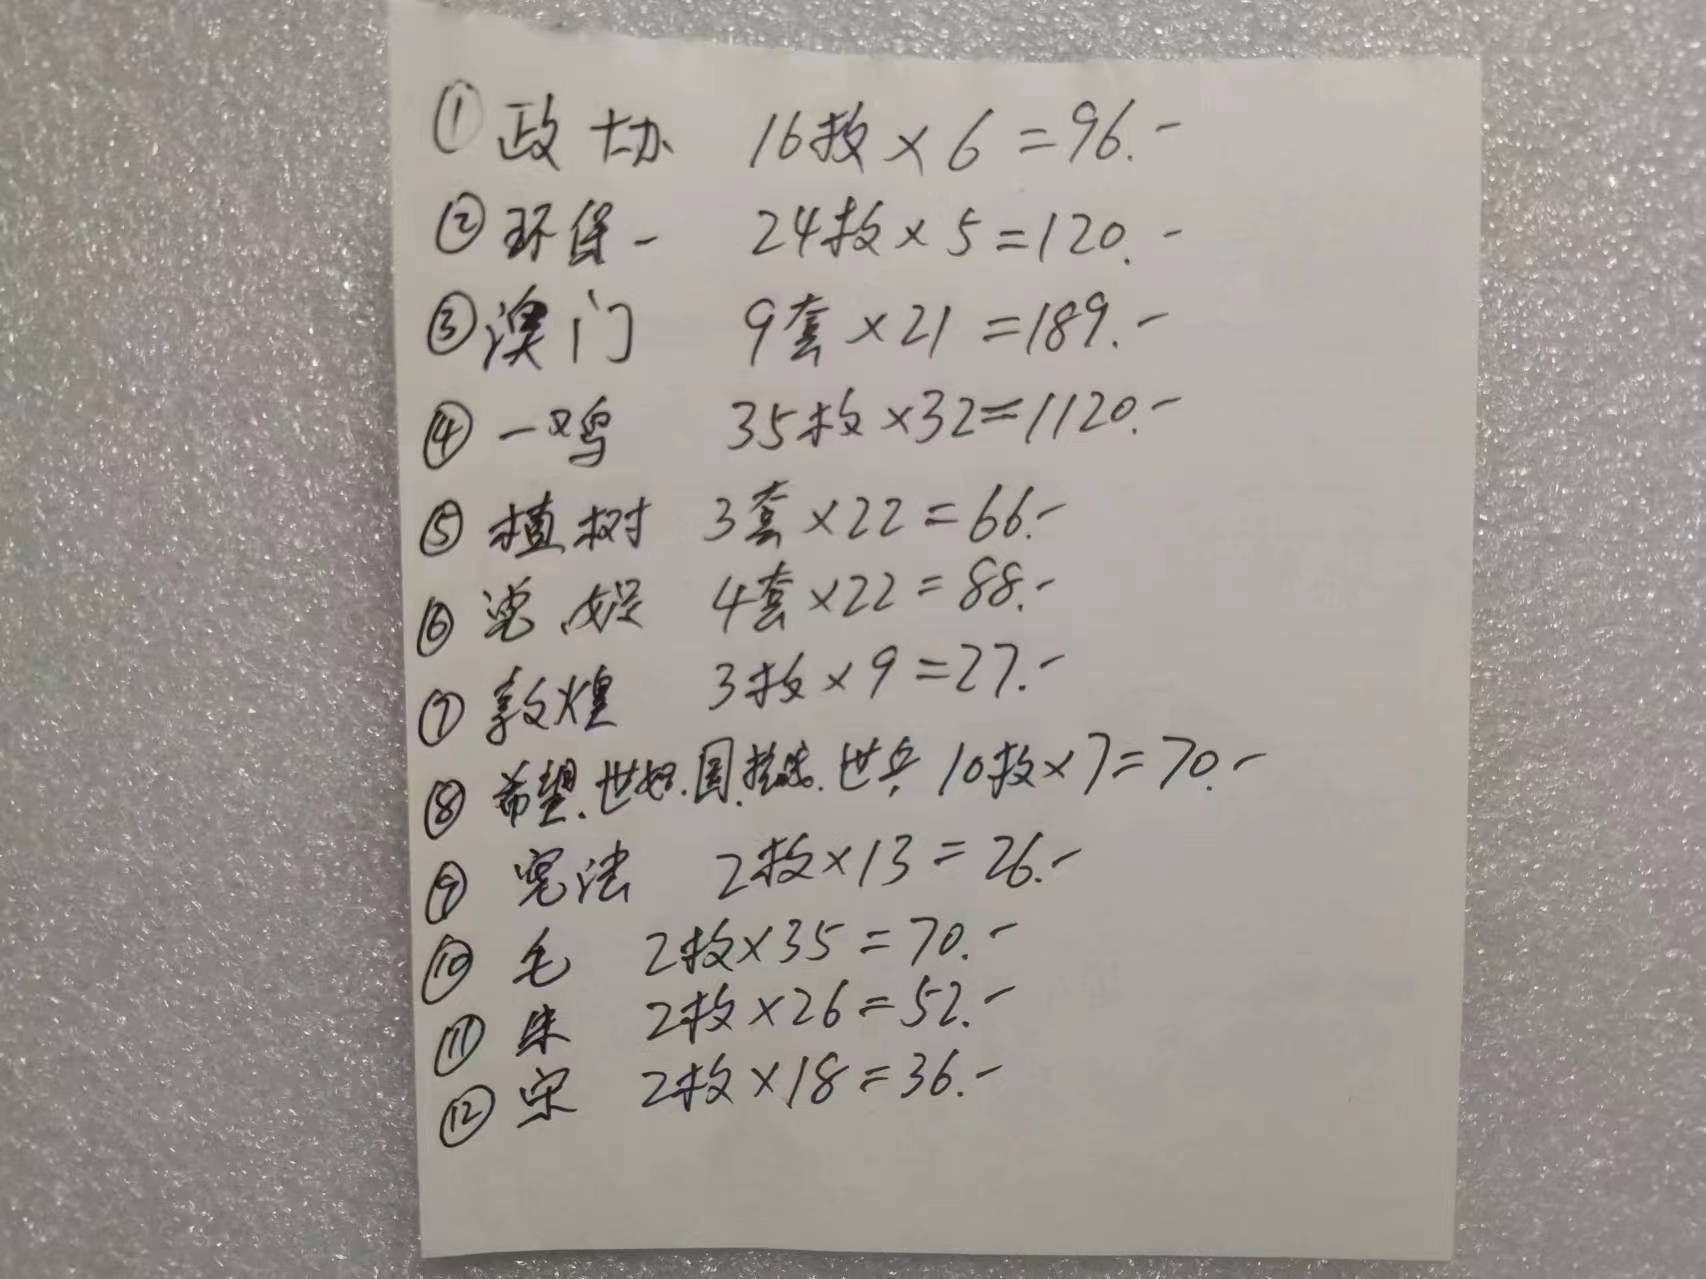 ① 政协 16枚×6=96.-
② 环保一 24枚×5=120.-
③ 澳门 9套×21=189.-
④ 一鸡 35枚×32=1120.-
⑤ 植树 3套×22=66.-
⑥ 4套×22=88.-
⑦ 敦煌 3枚×9=27.-
⑧ 希望.世妇.国.世乒 10枚×7=70.-
⑨ 宪法 2枚×13=26.-
⑩ 毛 2枚×35=70.-
⑪ 朱 2枚×26=52.-
⑫ 宋 2枚×18=36.-